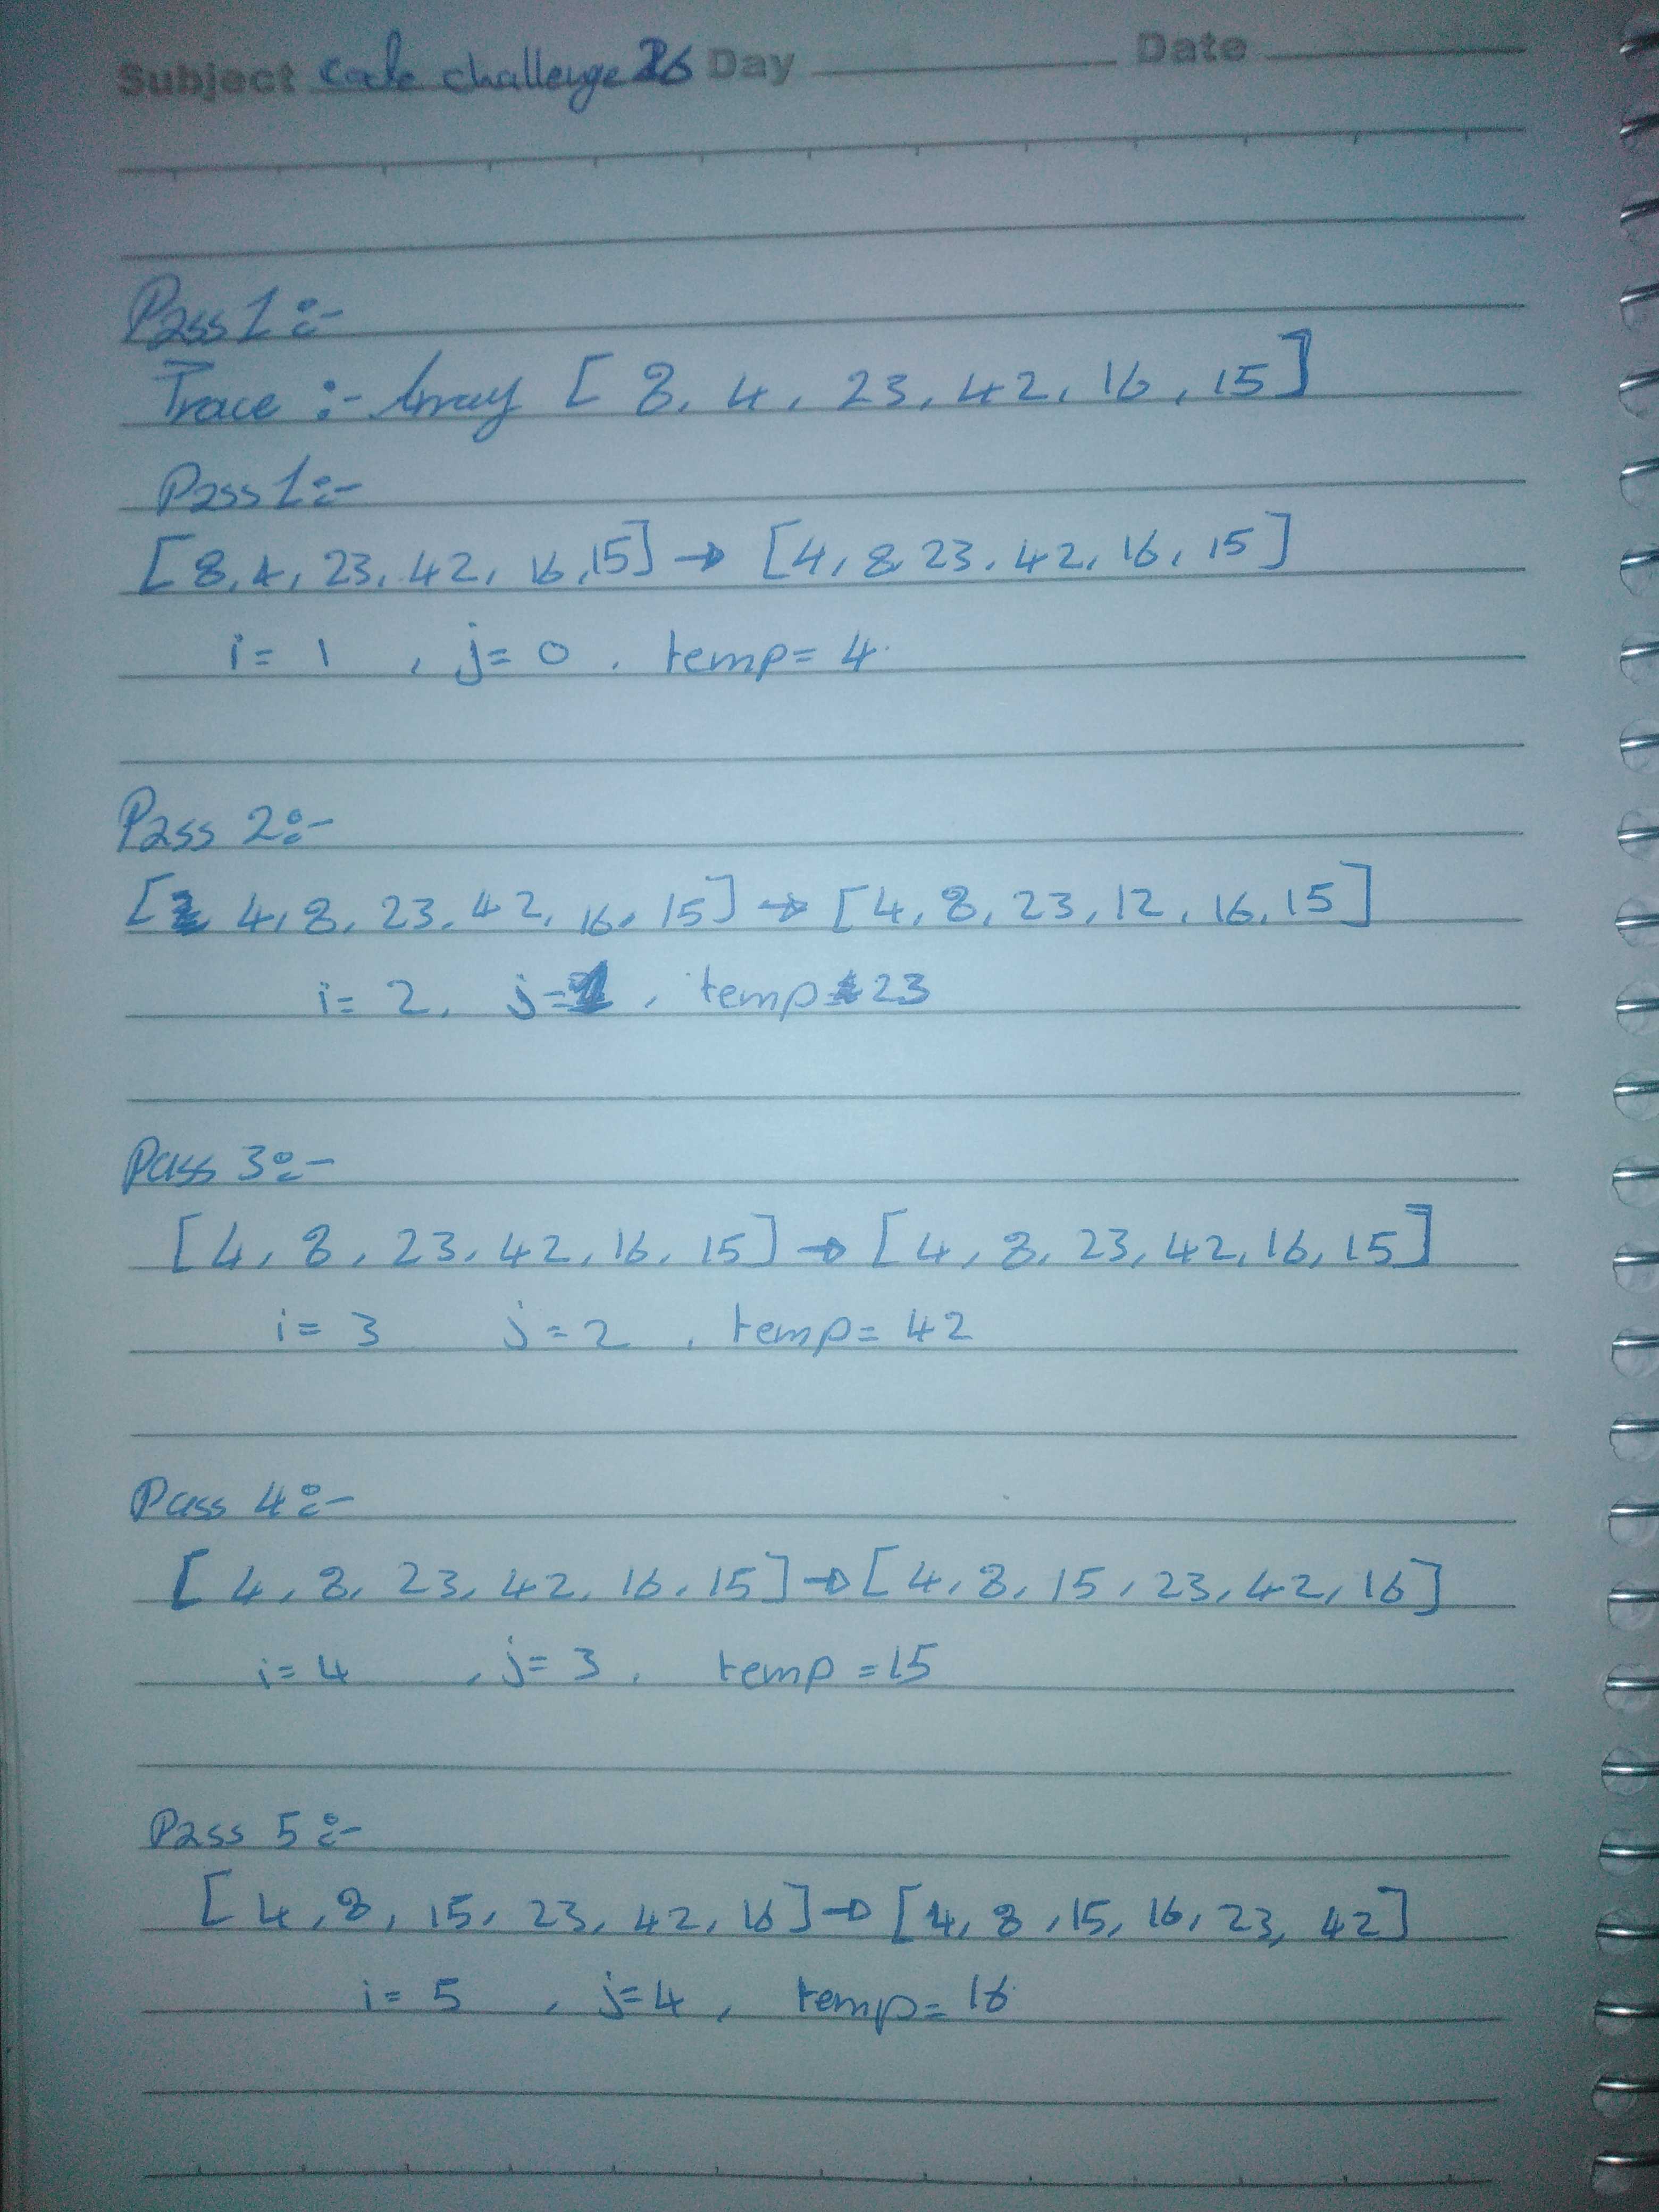 Subject Code challenge 26 Day Date
Pass 1:-
Trace :- Array [ 8, 4, 23, 42, 16, 15]
Pass 1:-
[8, 4, 23, 42, 16, 15] → [4, 8, 23, 42, 16, 15]
i = 1 , j = 0 , temp = 4
Pass 2:-
[ 4, 8, 23, 42, 16, 15] → [4, 8, 23, 12, 16, 15]
i = 2, j = 1 , temp = 23
Pass 3:-
[4, 8, 23, 42, 16, 15] → [4, 8, 23, 42, 16, 15]
i = 3 j = 2 , temp = 42
Pass 4:-
[4, 8, 23, 42, 16, 15] → [4, 8, 15, 23, 42, 16]
i = 4 , j = 3 , temp = 15
Pass 5:-
[4, 8, 15, 23, 42, 16] → [4, 8, 15, 16, 23, 42]
i = 5 , j = 4 , temp = 16